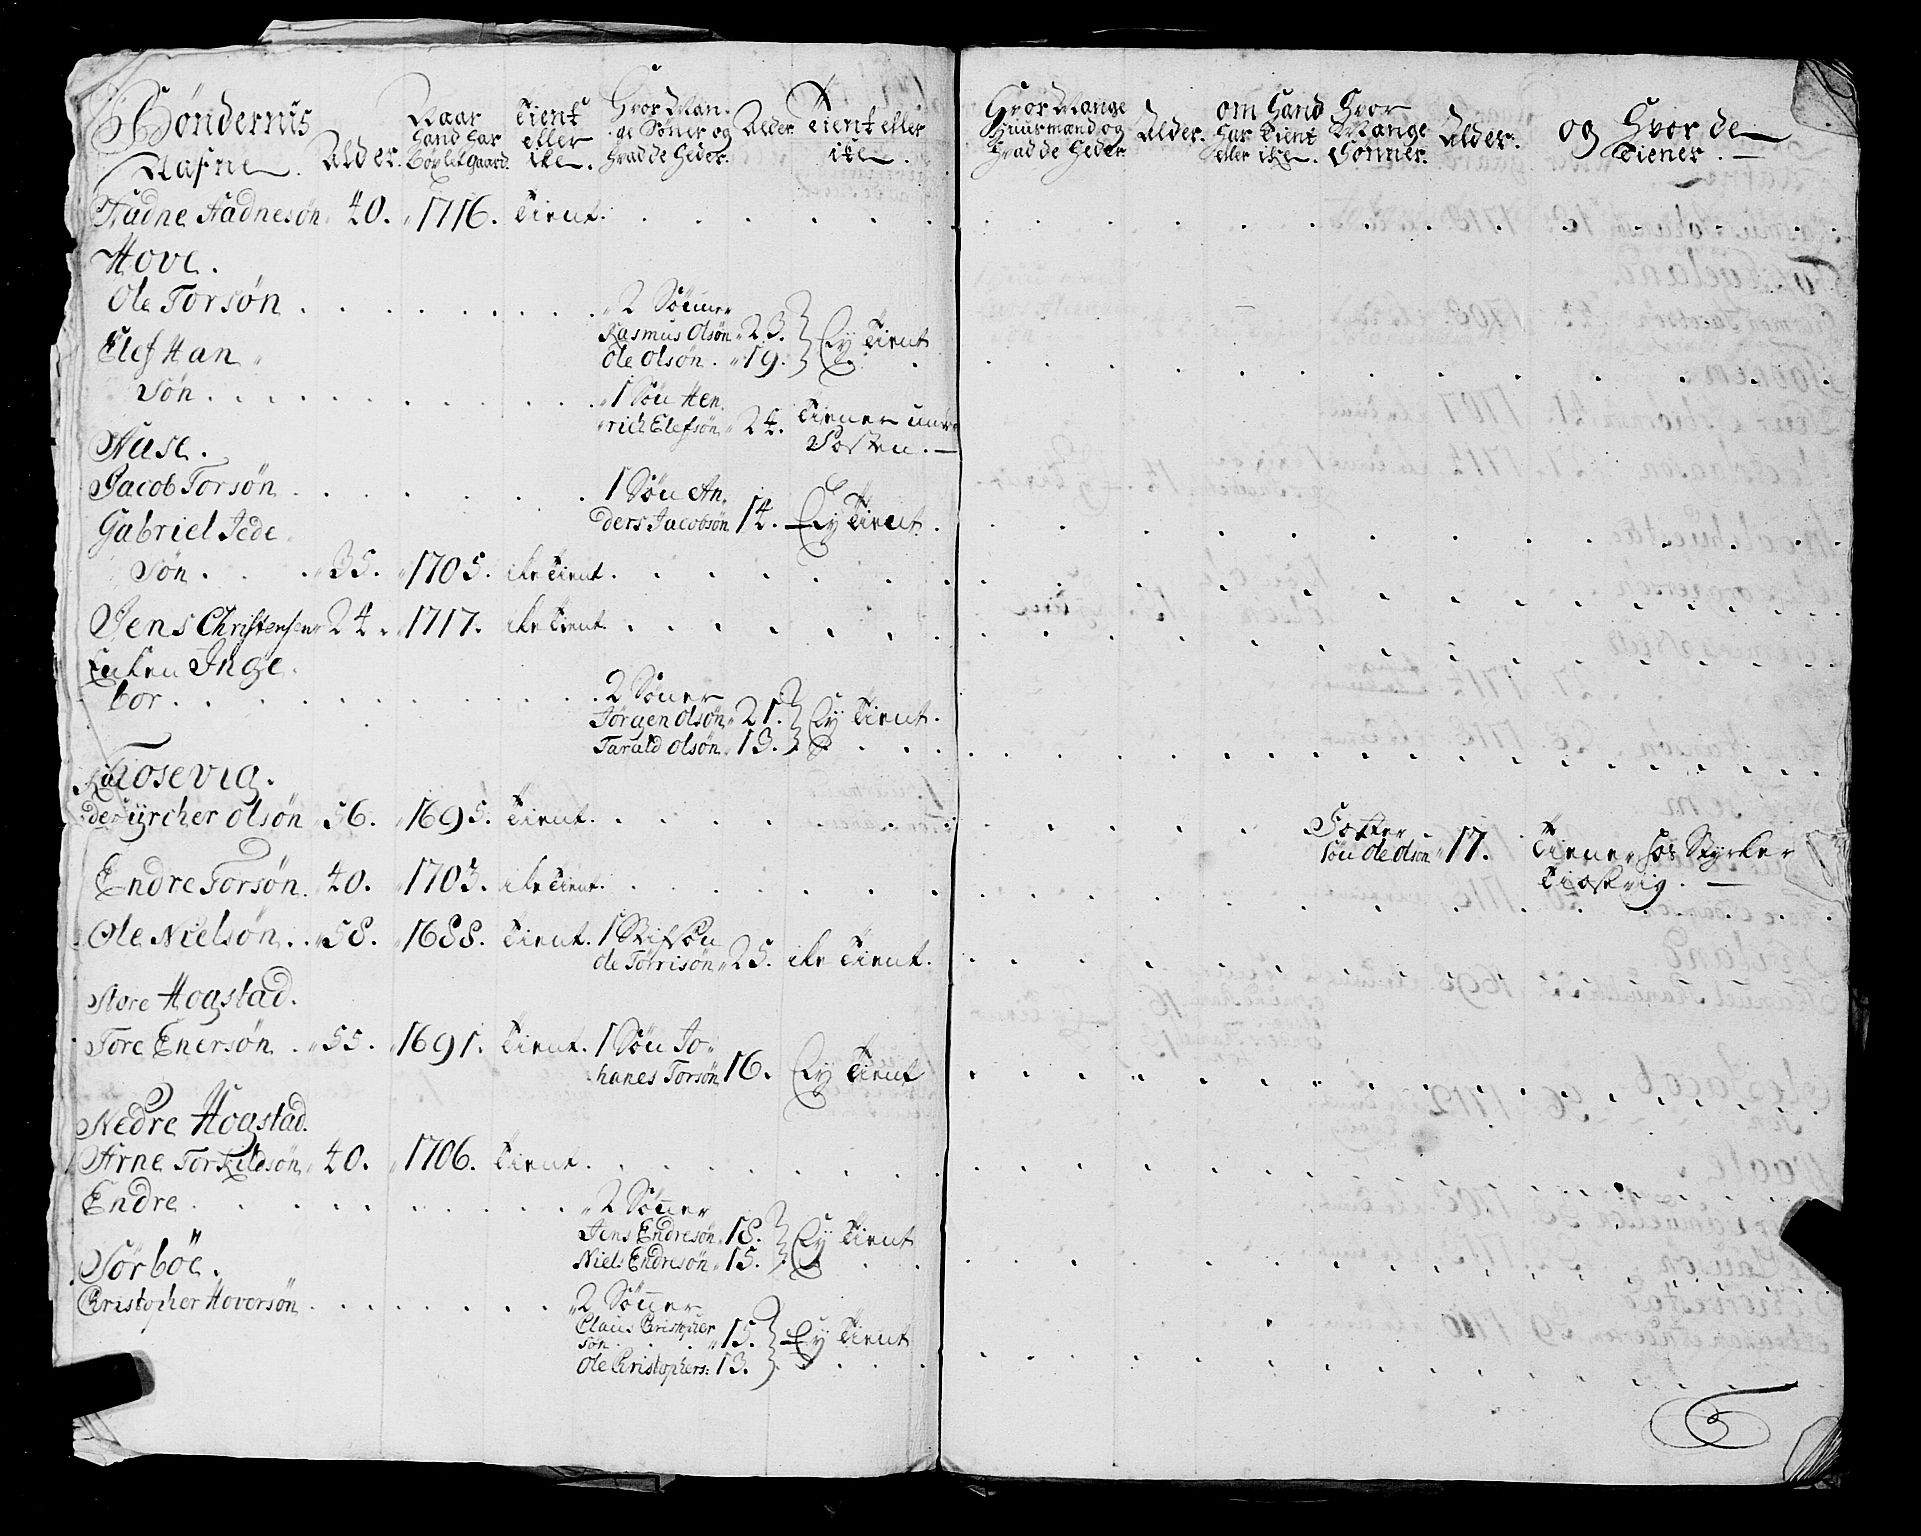 Böndernis Nafne. Alder. Naar hand har böxlet gaard. Tient eller ike. Hvor Mange Söner og hvad de heder. Alder. Tient eller ike.
Hvor Mange Huusmænd og hvad de heder. Alder. om hand har tient eller ike. Hvor Mange Sönner. Alder. og Hvor de Tiener.
Hadne Hadnesön 40. 1716. Tient.
Hove.
Ole Torsön
2 Sönner
Rasmus Olsön 23.
Ole Olsön. 19. Ey Tient
Elef Han
sön
1 Sön Hen
rich Elefsön 24. Tiener under
Posten.
Aase.
Jacob Torsön
1 Sön An
ders Jacobsön 14. Ey Tient.
Gabriel Jede
sön. 35. 1705. ike Tient.
Jens Christensen 24. 1717. ike Tient.
Enken Inge
bor.
2 Söner
Jörgen Olsön 21.
Tarald Olsön 13. Ey Tient.
Kiosevig.
Styrcher Olsön 56. 1695. Tient.
sön Ole Olsön 17. Tiener hos Styrker
Kiossvig.
Endre Torsön. 40. 1703. ike Tient.
Ole Nielsön. 58. 1688. Tient. 1 Stifsön
Ole Törrisön 25. ike Tient.
Store Hogstad.
Tore Enersön. 55. 1691. Tient. 1 Sön Jo
hanes Torsön 16. Ey Tient
Nedre Hogstad.
Arne Torkildsön 40. 1706. Tient.
Endre.
2 Sönner
Jens Endresön 18.
Niels Endresön 15. Ey Tient
Sörböe.
Christopher Hoversön
2 Sönner
Claus Christopher
sön. 15. Ey Tient
Ole Christophers: 13.